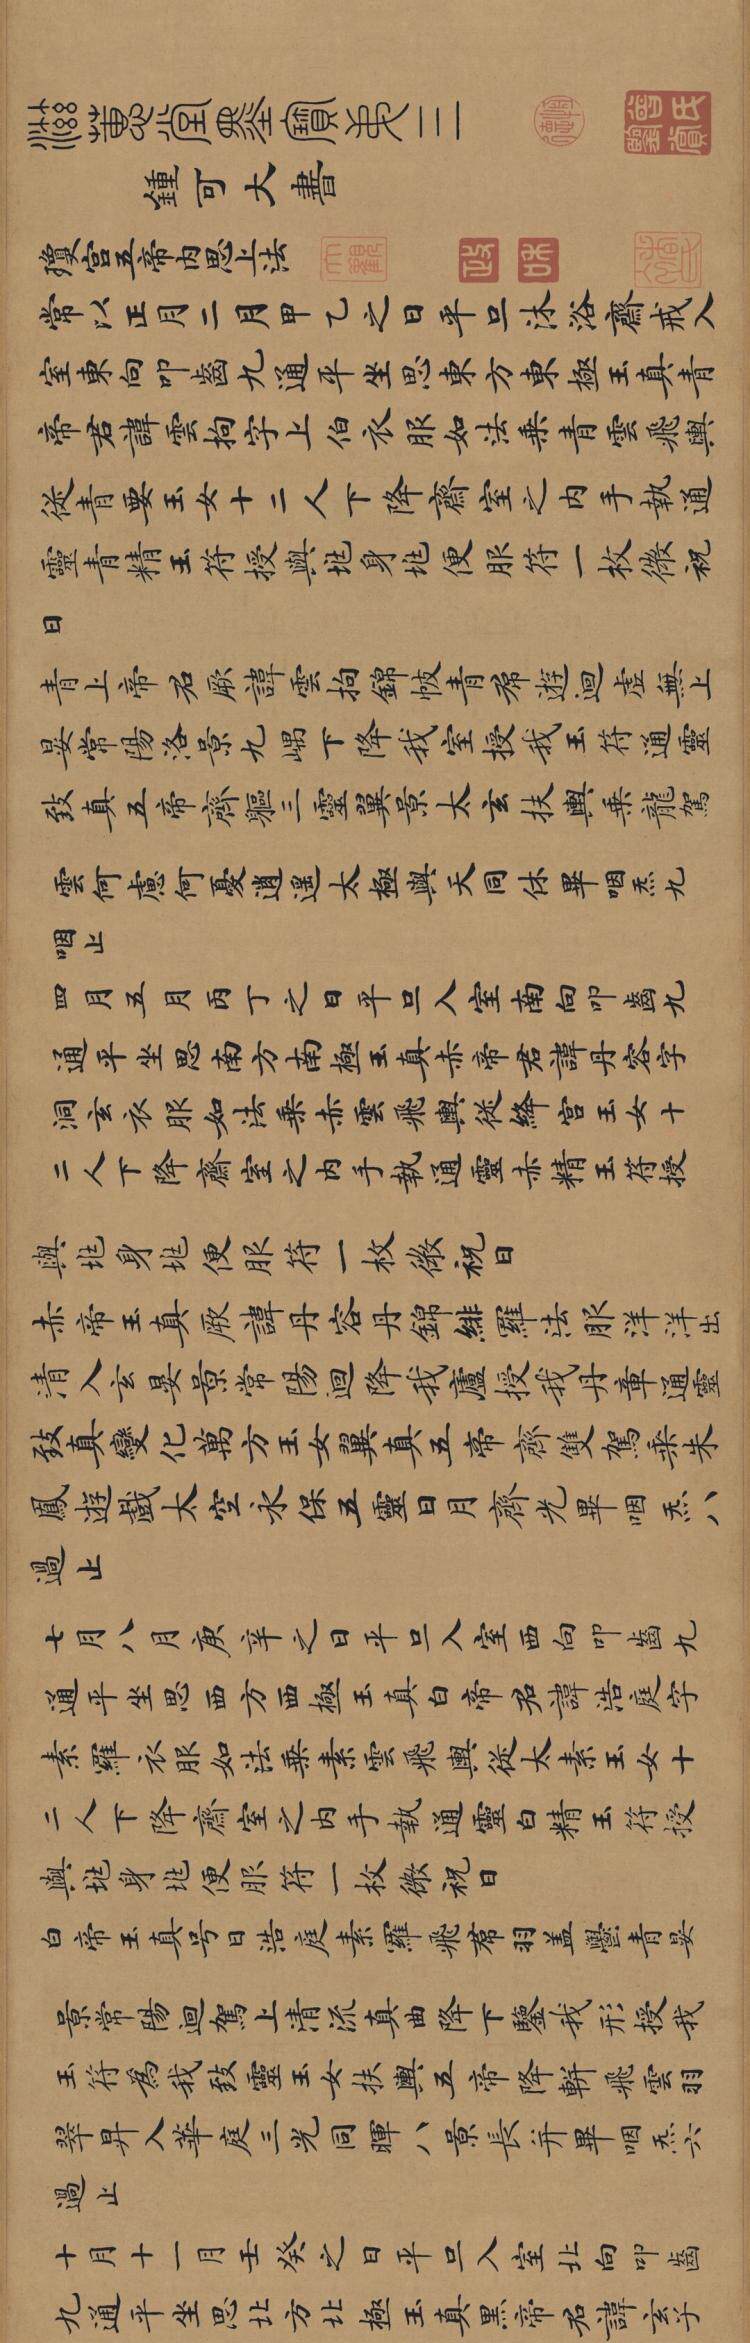 滋蕙堂墨寶第三
曾氏鑒賞
鍾可大書
瓊宮五帝內思上法
大觀
政和
常以正月二月甲乙之日平旦沐浴齋戒入
室東向叩齒九通平坐思東方東極玉真青
帝君諱雲拘字上伯衣服如法乘青雲飛輿
從青要玉女十二人下降齋室之內手執通
靈青精玉符授與兆身兆便服符一枚微祝
曰
青上帝君厥諱雲拘錦帔青帬遊迴虛無上
晏常陽洛景九嵎下降我室授我玉符通靈
致真五帝齊軀三靈翼景太玄扶輿乘龍駕
雲何慮何憂逍遙太極與天同休畢咽炁九
咽止
四月五月丙丁之日平旦入室南向叩齒九
通平坐思南方南極玉真赤帝君諱丹容字
洞玄衣服如法乘赤雲飛輿從絳宮玉女十
二人下降齋室之內手執通靈赤精玉符授
與兆身兆便服符一枚微祝曰
赤帝玉真厥諱丹容丹錦緋羅法服洋洋出
清入玄晏景常陽迴降我廬授我丹章通靈
致真變化萬方玉女翼真五帝齊雙駕乘朱
鳳遊戲太空永保五靈日月齊光畢咽炁八
過止
七月八月庚辛之日平旦入室西向叩齒九
通平坐思西方西極玉真白帝君諱浩庭字
素羅衣服如法乘素雲飛輿從太素玉女十
二人下降齋室之內手執通靈白精玉符授
與兆身兆便服符一枚微祝曰
白帝玉真号曰浩庭素羅飛帬羽蓋鬱青晏
景常陽迴駕上清流真曲降下鑒我形授我
玉符為我致靈玉女扶輿五帝降軿飛雲羽
翠昇入華庭三光同暉八景長并畢咽炁六
過止
十月十一月壬癸之日平旦入室北向叩齒
九通平坐思北方北極玉真黑帝君諱玄子